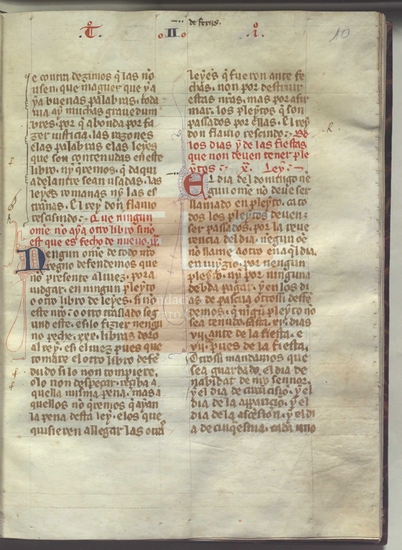 de ferijs
T II i
10
e contra dezimos q̃ las nõ
usen, que maguer que ya
ya buenas palabras, toda
uia ay muchas grauedum
bres, por q̃ abonda por fa
zer iusticia, las razones
e las palabras e las leyes
que son contenidas en este
libro. ny q̃remos q̃ daqui
adelante sean usadas, las
leyes romanas ny las es
trañas. El rey don flauio
rescindo. Que ningun
ome nõ aya otro libro sino
est que es fecho de nueuo.
Ningun ome de todo nro
regno defendemos que
nõ presente al iuez, pora
iudgar, en ningun pleyto
o otro libro de leyes, si nõ
este nro, o otro traslado seg
und este. E si lo fizier nengũ
nõ peche. xxx. libras doro
al rey. e si el iuez pues que
tomare el otro libro defen
dudo si lo non rompiere,
o lo non despeçar, reciba a
quella misma pena. mas a
quellos nõ q̃remos q̃ ayan
la pena desta ley. e los que
quisieren allegar las otras
leyes q̃ fueron ante fe
chas, non por destruir
estas nras, mas por afir
mar, los pleytos q̃ son
passados por ellas. El rey
don flauio rescindo. De
los dias y de las fiestas
que non deuen tener ple
ytos. X. Ley.
El dia del domingo ne
gun ome nõ deue ser
llamado en pleyto. ca to
dos los pleytos deuen
ser passados, por la reue
rencia del dia. negun oe
nõ llame a otro en aq̃l dia
en iuyzio, por nengun
pleyto. ny por ninguna
debda pagar. y en los di
as de pascua otrossi defen
demos, q̃ nigũ pleyto nõ
sea tenudo fasta. xv. dias
y ante de la fiesta, e
y pues de la fiesta.
Otrossi mandamos que
sea guardado, el dia de
nabidat de nro sennor,
y el dia de circũcisiõ, y el
dia de la apariciõ. y el
dia de la ascẽsion. y el di
a de cinquesma, cada uno